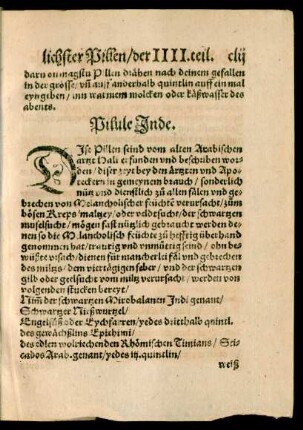 lichster Pillen/der IIII.teil. clij
daruon magstu Pillen drähen nach deinem gefallen
in der grösse/ vñ auff anderhalb quintlin auff ein mal
eyngeben/ mit warmem molcken oder käßwasser des
abents.
Pilule Inde.
Dise Pillen seind vom alten Arabischen
artzt Hali erfunden vnd beschriben wor-
den/ diser zeyt bey den ärtzten vnd Apo-
teckern in gemeynem brauch/ sonderlich
nütz vnd dienstlich zu allen fälen vnd ge-
brechen von Melancholischer feüchte verursacht/ zum
bösen Kreps/maltzey/oder veldtsucht/der schwartzen
muselsucht/ mögen fast nützlich gebraucht werden de-
nen so die Melancholisch feüchte zu hefftig überhand
genommen hat/traurig vnd vnmütig seind/ ohn be-
wüßte vrsach/dienen für mancherlei fäl vnd gebrechen
des miltz/ dem viertägigen feber/ vnd der schwartzen
gilb oder geelsucht vom miltz verursacht/ werden von
volgenden stucken bereyt/
Nim̃ der schwartzen Mirobalanen Indi genant/
Schwartzer Nießwurtzel/
Engelsüß oder Eychfarren/yedes dritthalb quintl.
des gewächßlins Epithimi/
des edlen wolriechenden Rhömischen Timians/ Sti-
cados Arab. genant/yedes iij. quintlin/
weiß